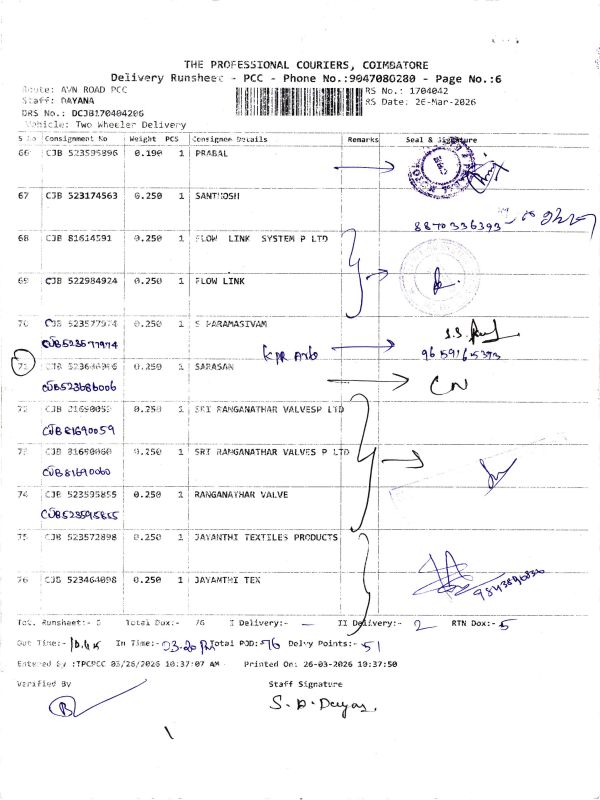 THE PROFESSIONAL COURIERS, COIMBATORE
Delivery Runsheet - PCC - Phone No.:9047080280 - Page No.:6
Route: AVN ROAD PCC
RS No.: 1704042
Staff: DAYANA
RS Date: 26-Mar-2026
DRS No.: DCJB170404206
Vehicle: Two Wheeler Delivery
S No Consignment No Weight PCS Consignee Details Remarks Seal & Signature
66 CJB 523595896 0.190 1 PRABAL
67 CJB 523174563 0.250 1 SANTHOSH
8870336393
68 CJB 81614591 0.250 1 FLOW LINK SYSTEM P LTD
69 CJB 522984924 0.250 1 FLOW LINK
70 CJB 523577974 0.250 1 S PARAMASIVAM
CJB523577974
71 0.250 1 SARASAN
CJB523686006
CN
72 CJB 81690059 0.250 1 SRI RANGANATHAR VALVESP LTD
CJB81690059
73 CJB 81690060 0.250 1 SRI RANGANATHAR VALVES P LTD
CJB81690060
74 CJB 523595855 0.250 1 RANGANATHAR VALVE
CJB523595855
75 CJB 523572898 0.250 1 JAYANTHI TEXTILES PRODUCTS
76 CJB 523464098 0.250 1 JAYANTHI TEX
Tot. Runsheet:- 6 Total Dox:- 76 I Delivery:- - II Delivery:- 2 RTN Dox:- 5
Out Time:- 10.45 In Time:- 03.20 PM Total POD:- 76 Delvy Points:- 51
Entered By :TPCPCC 03/26/2026 10:37:07 AM Printed On: 26-03-2026 10:37:50
Verified By
Staff Signature